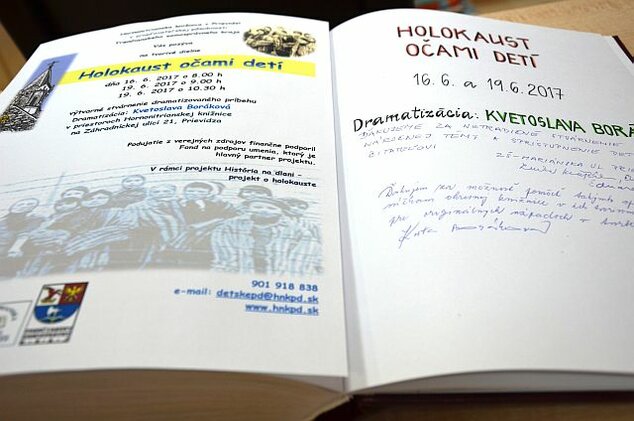 Hornonitrianska knižnica v Prievidzi
v zriaďovateľskej pôsobnosti
Trenčianskeho samosprávneho kraja
Vás pozýva
na tvorivé dielne
Holokaust očami detí
dňa 16. 6. 2017 o 8.00 h
19. 6. 2017 o 9.00 h
19. 6. 2017 o 10.30 h
výtvarné stvárnenie dramatizovaného príbehu
Dramatizácia: Kvetoslava Boráková
v priestoroch Hornonitrianskej knižnice
na Záhradníckej ulici 21, Prievidza
Podujatie z verejných zdrojov finančne podporil
Fond na podporu umenia, ktorý je
hlavný partner projektu.
V rámci projektu História na dlani –
projekt o holokauste
901 918 838
e-mail: detskepd@hnkpd.sk
www.hnkpd.sk
HOLOKAUST
OČAMI DETÍ
16. 6. a 19.6.2017
Dramatizácia: KVETOSLAVA BORÁ
ĎAKUJEME ZA NETRADIČNÉ STVÁRNENIE
NÁROČNEJ TÉMY A SPRÍSTUPNENIE DET
ČITATEĽOVI
ZŠ-MARIÁNSKA UL PRIE
Ďakujem za možnosť pomôcť